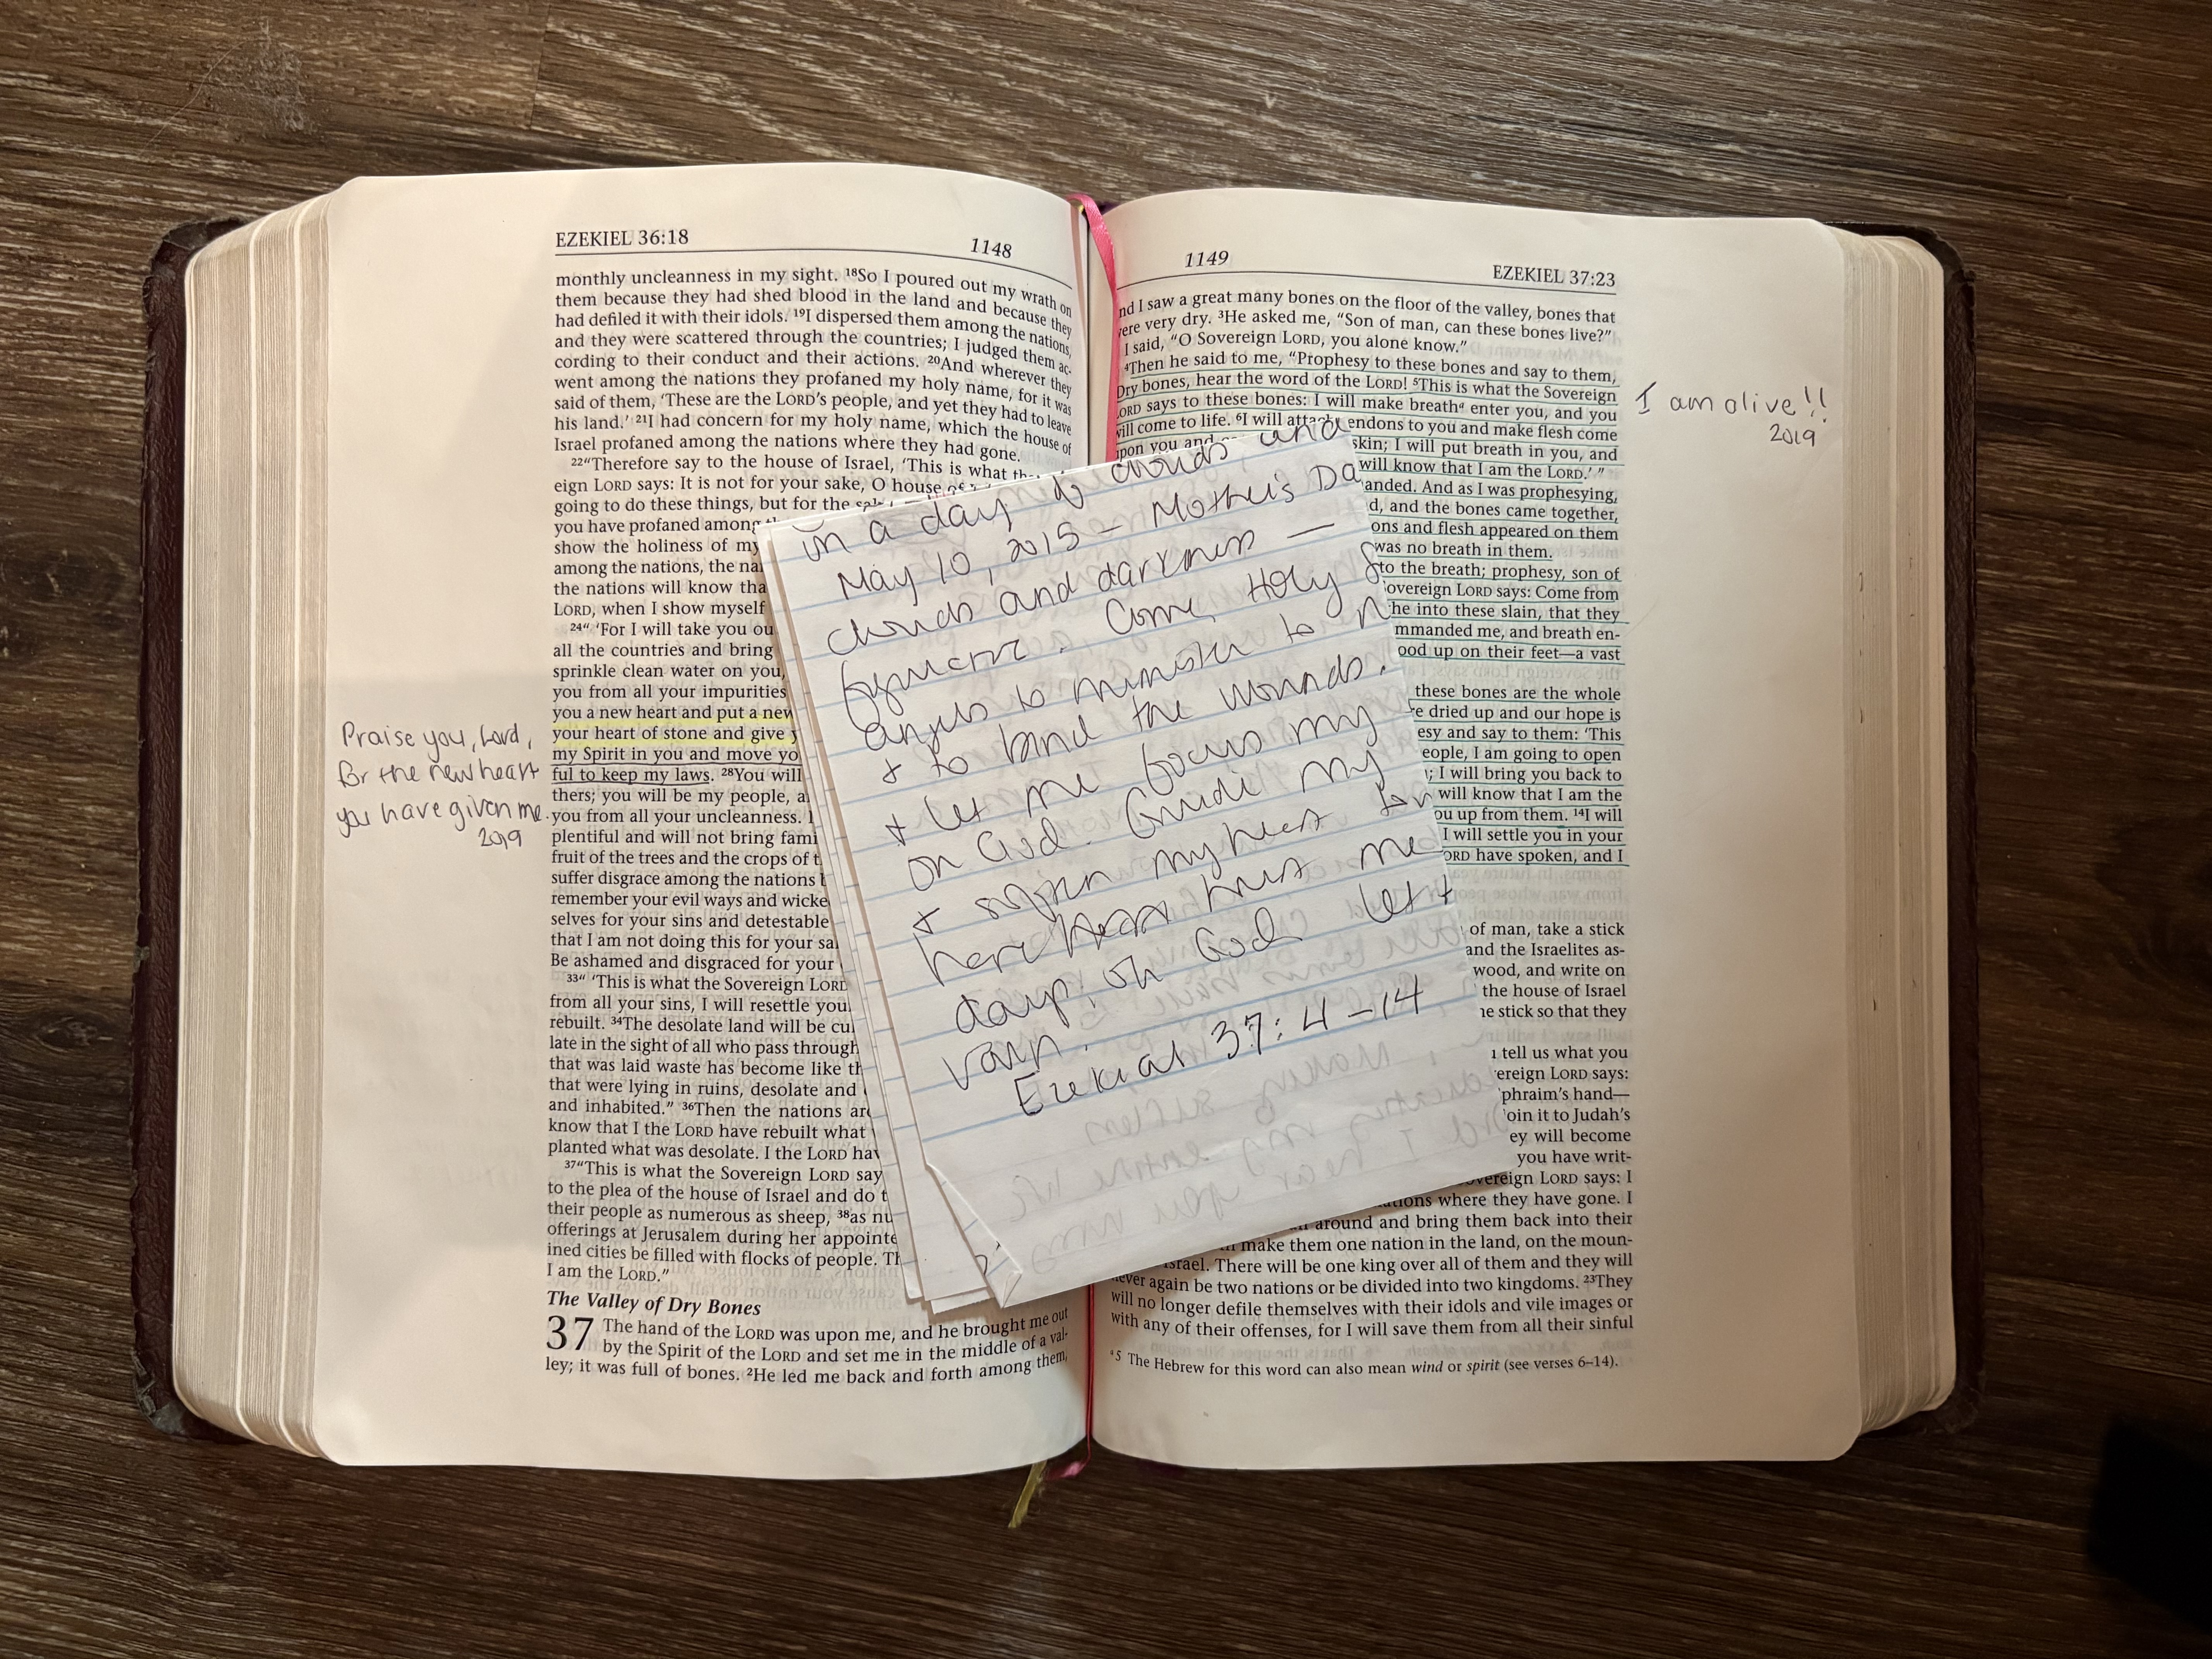 EZEKIEL 36:18
1148
monthly uncleanness in my sight. ¹⁸So I poured out my wrath on
them because they had shed blood in the land and because they
had defiled it with their idols. ¹⁹I dispersed them among the nations,
and they were scattered through the countries; I judged them ac-
cording to their conduct and their actions. ²⁰And wherever they
went among the nations they profaned my holy name, for it was
said of them, ‘These are the LORD’s people, and yet they had to leave
his land.’ ²¹I had concern for my holy name, which the house of
Israel profaned among the nations where they had gone.
²²“Therefore say to the house of Israel, ‘This is what th
eign LORD says: It is not for your sake, O house of
going to do these things, but for the
you have profaned among
show the holiness of my
among the nations, the na
the nations will know tha
LORD, when I show myself
²⁴“ ‘For I will take you ou
all the countries and bring
sprinkle clean water on you,
you from all your impurities
you a new heart and put a new
your heart of stone and give y
my Spirit in you and move yo
ful to keep my laws. ²⁸You will
thers; you will be my people, a
you from all your uncleanness. I
plentiful and will not bring fami
fruit of the trees and the crops of t
suffer disgrace among the nations b
remember your evil ways and wicke
selves for your sins and detestable
that I am not doing this for your sa
Be ashamed and disgraced for your
³³“ ‘This is what the Sovereign LORD
from all your sins, I will resettle you
rebuilt. ³⁴The desolate land will be cu
late in the sight of all who pass through
that was laid waste has become like th
that were lying in ruins, desolate and
and inhabited.” ³⁶Then the nations aro
know that I the LORD have rebuilt what
planted what was desolate. I the LORD hav
³⁷“This is what the Sovereign LORD say
to the plea of the house of Israel and do t
their people as numerous as sheep, ³⁸as nu
offerings at Jerusalem during her appointe
ined cities be filled with flocks of people. Th
I am the LORD.”
The Valley of Dry Bones
37 The hand of the LORD was upon me, and he brought me out
by the Spirit of the LORD and set me in the middle of a val-
ley; it was full of bones. ²He led me back and forth among them,
Praise you, Lord,
for the new heart
you have given me.
2019
in a day of clouds, and
May 10, 2015 – Mother's Da
clouds and darkness —
Come, Holy S
angels to minister to m
+ to bind the wounds.
+ let me focus my
on God. Guide my
+ soften my heart
here
days on God. let
vain.
Ezekial 37: 4–14
1149
EZEKIEL 37:23
nd I saw a great many bones on the floor of the valley, bones that
ere very dry. ³He asked me, “Son of man, can these bones live?”
I said, “O Sovereign LORD, you alone know.”
⁴Then he said to me, “Prophesy to these bones and say to them,
Dry bones, hear the word of the LORD! ⁵This is what the Sovereign
ORD says to these bones: I will make breathᵃ enter you, and you
ill come to life. ⁶I will attach endons to you and make flesh come
pon you and skin; I will put breath in you, and
will know that I am the LORD.’ ”
anded. And as I was prophesying,
d, and the bones came together,
ons and flesh appeared on them
was no breath in them.
to the breath; prophesy, son of
overeign LORD says: Come from
he into these slain, that they
mmanded me, and breath en-
ood up on their feet—a vast
these bones are the whole
re dried up and our hope is
esy and say to them: ‘This
eople, I am going to open
; I will bring you back to
will know that I am the
ou up from them. ¹⁴I will
I will settle you in your
ORD have spoken, and I
of man, take a stick
and the Israelites as-
wood, and write on
the house of Israel
ne stick so that they
tell us what you
ereign LORD says:
phraim’s hand—
oin it to Judah’s
ey will become
you have writ-
vereign LORD says: I
ations where they have gone. I
around and bring them back into their
make them one nation in the land, on the moun-
Israel. There will be one king over all of them and they will
never again be two nations or be divided into two kingdoms. ²³They
will no longer defile themselves with their idols and vile images or
with any of their offenses, for I will save them from all their sinful
ᵃ5 The Hebrew for this word can also mean wind or spirit (see verses 6–14).
I am alive!!
2019